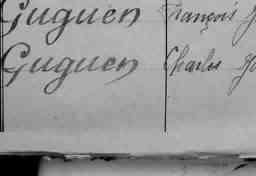 Guguen François
Guguen Charles